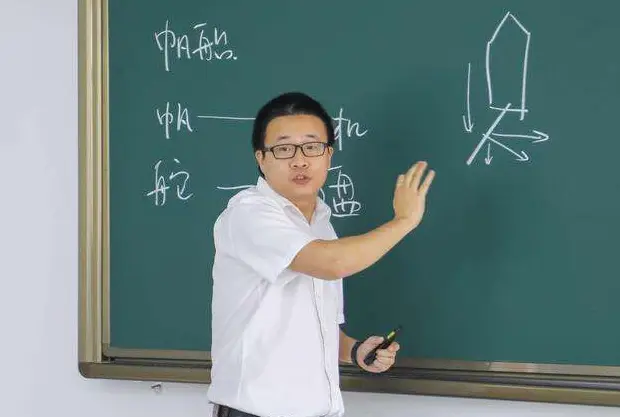 帆船
帆 — 机
舵 — 盘